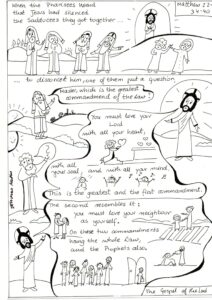 When the Pharisees heard
that Jesus had silenced
the Sadducees they got together ...
Matthew 22
34-40
... to disconcert him, one of them put a question...
Master, which is the greatest
commandment of the law?
You must love your
Lord
with all your heart,
with all
your soul, and with all your mind.
This is the greatest and the first commandment.
The second resembles it:
you must love your neighbour
as yourself.
On these two commandments
hang the whole Law,
and the Prophets also.
The Gospel of the Lord